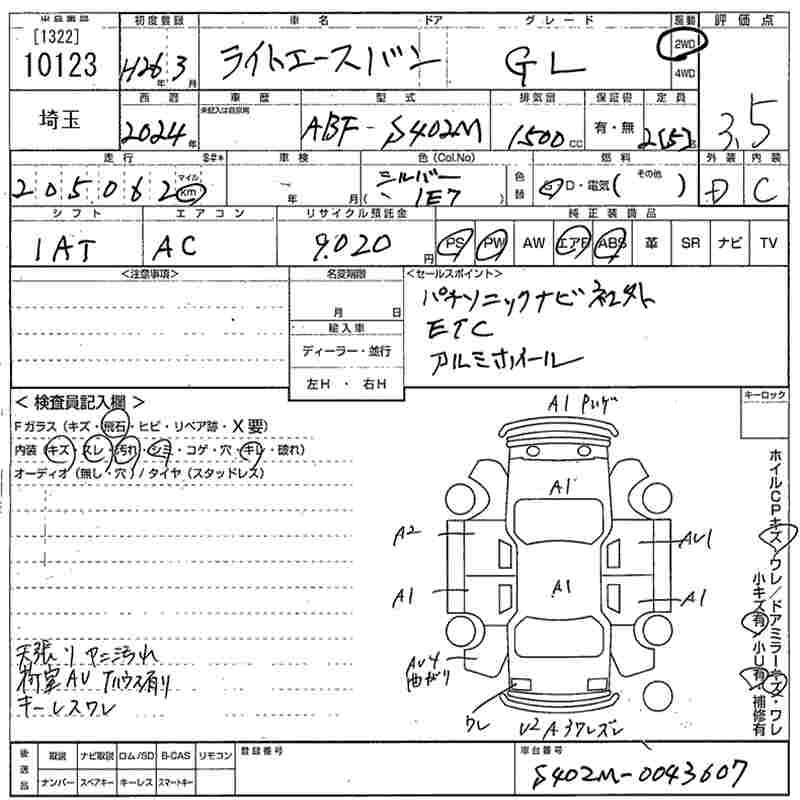 [1322]
10123
初度登録 車名 ドア グレード 駆動 評価点
H26年 3月 ライトエースバン GL 2WD 4WD
3.5
埼玉
西暦 車歴 型式 排気量 保証書 定員
2024年 ABF-S402M 1500cc 有・無 2(5)名
走行 車検 色 (Col.No) 色替 燃料 外装 内装
205062 マイル km 年 月 シルバー ( 1E7 ) G・D・電気( その他 ) D C
シフト エアコン リサイクル預託金 純正装備品
1AT AC 9,020円 PS PW AW エアB ABS 革 SR ナビ TV
<注意事項> 名変期限 <セールスポイント>
月 日
輸入車
ディーラー・並行
左H・右H
パナソニックナビ社外
ETC
アルミホイール
<検査員記入欄>
Fガラス (キズ・飛石・ヒビ・リペア跡・X要)
内装 (キズ・スレ・汚れ・シミ・コゲ・穴・キレ・破れ)
オーディオ (無し・穴) / タイヤ (スタッドレス)
キーロック
A1
A1
A2
AU1
A1
A1
A1
AU4
曲がり
ワレ
ホイルCPキズ・ワレ/ドアミラーキズ・ワレ
小キズ有/小U有/補修有
天張りヤニ汚れ
荷室AU Tハウス有り
キーレスワレ
後送品 取説 ナビ取説 ロム/SD B-CAS リモコン
ナンバー スペアキー キーレス スマートキー
登録番号 車台番号
S402M-0043607